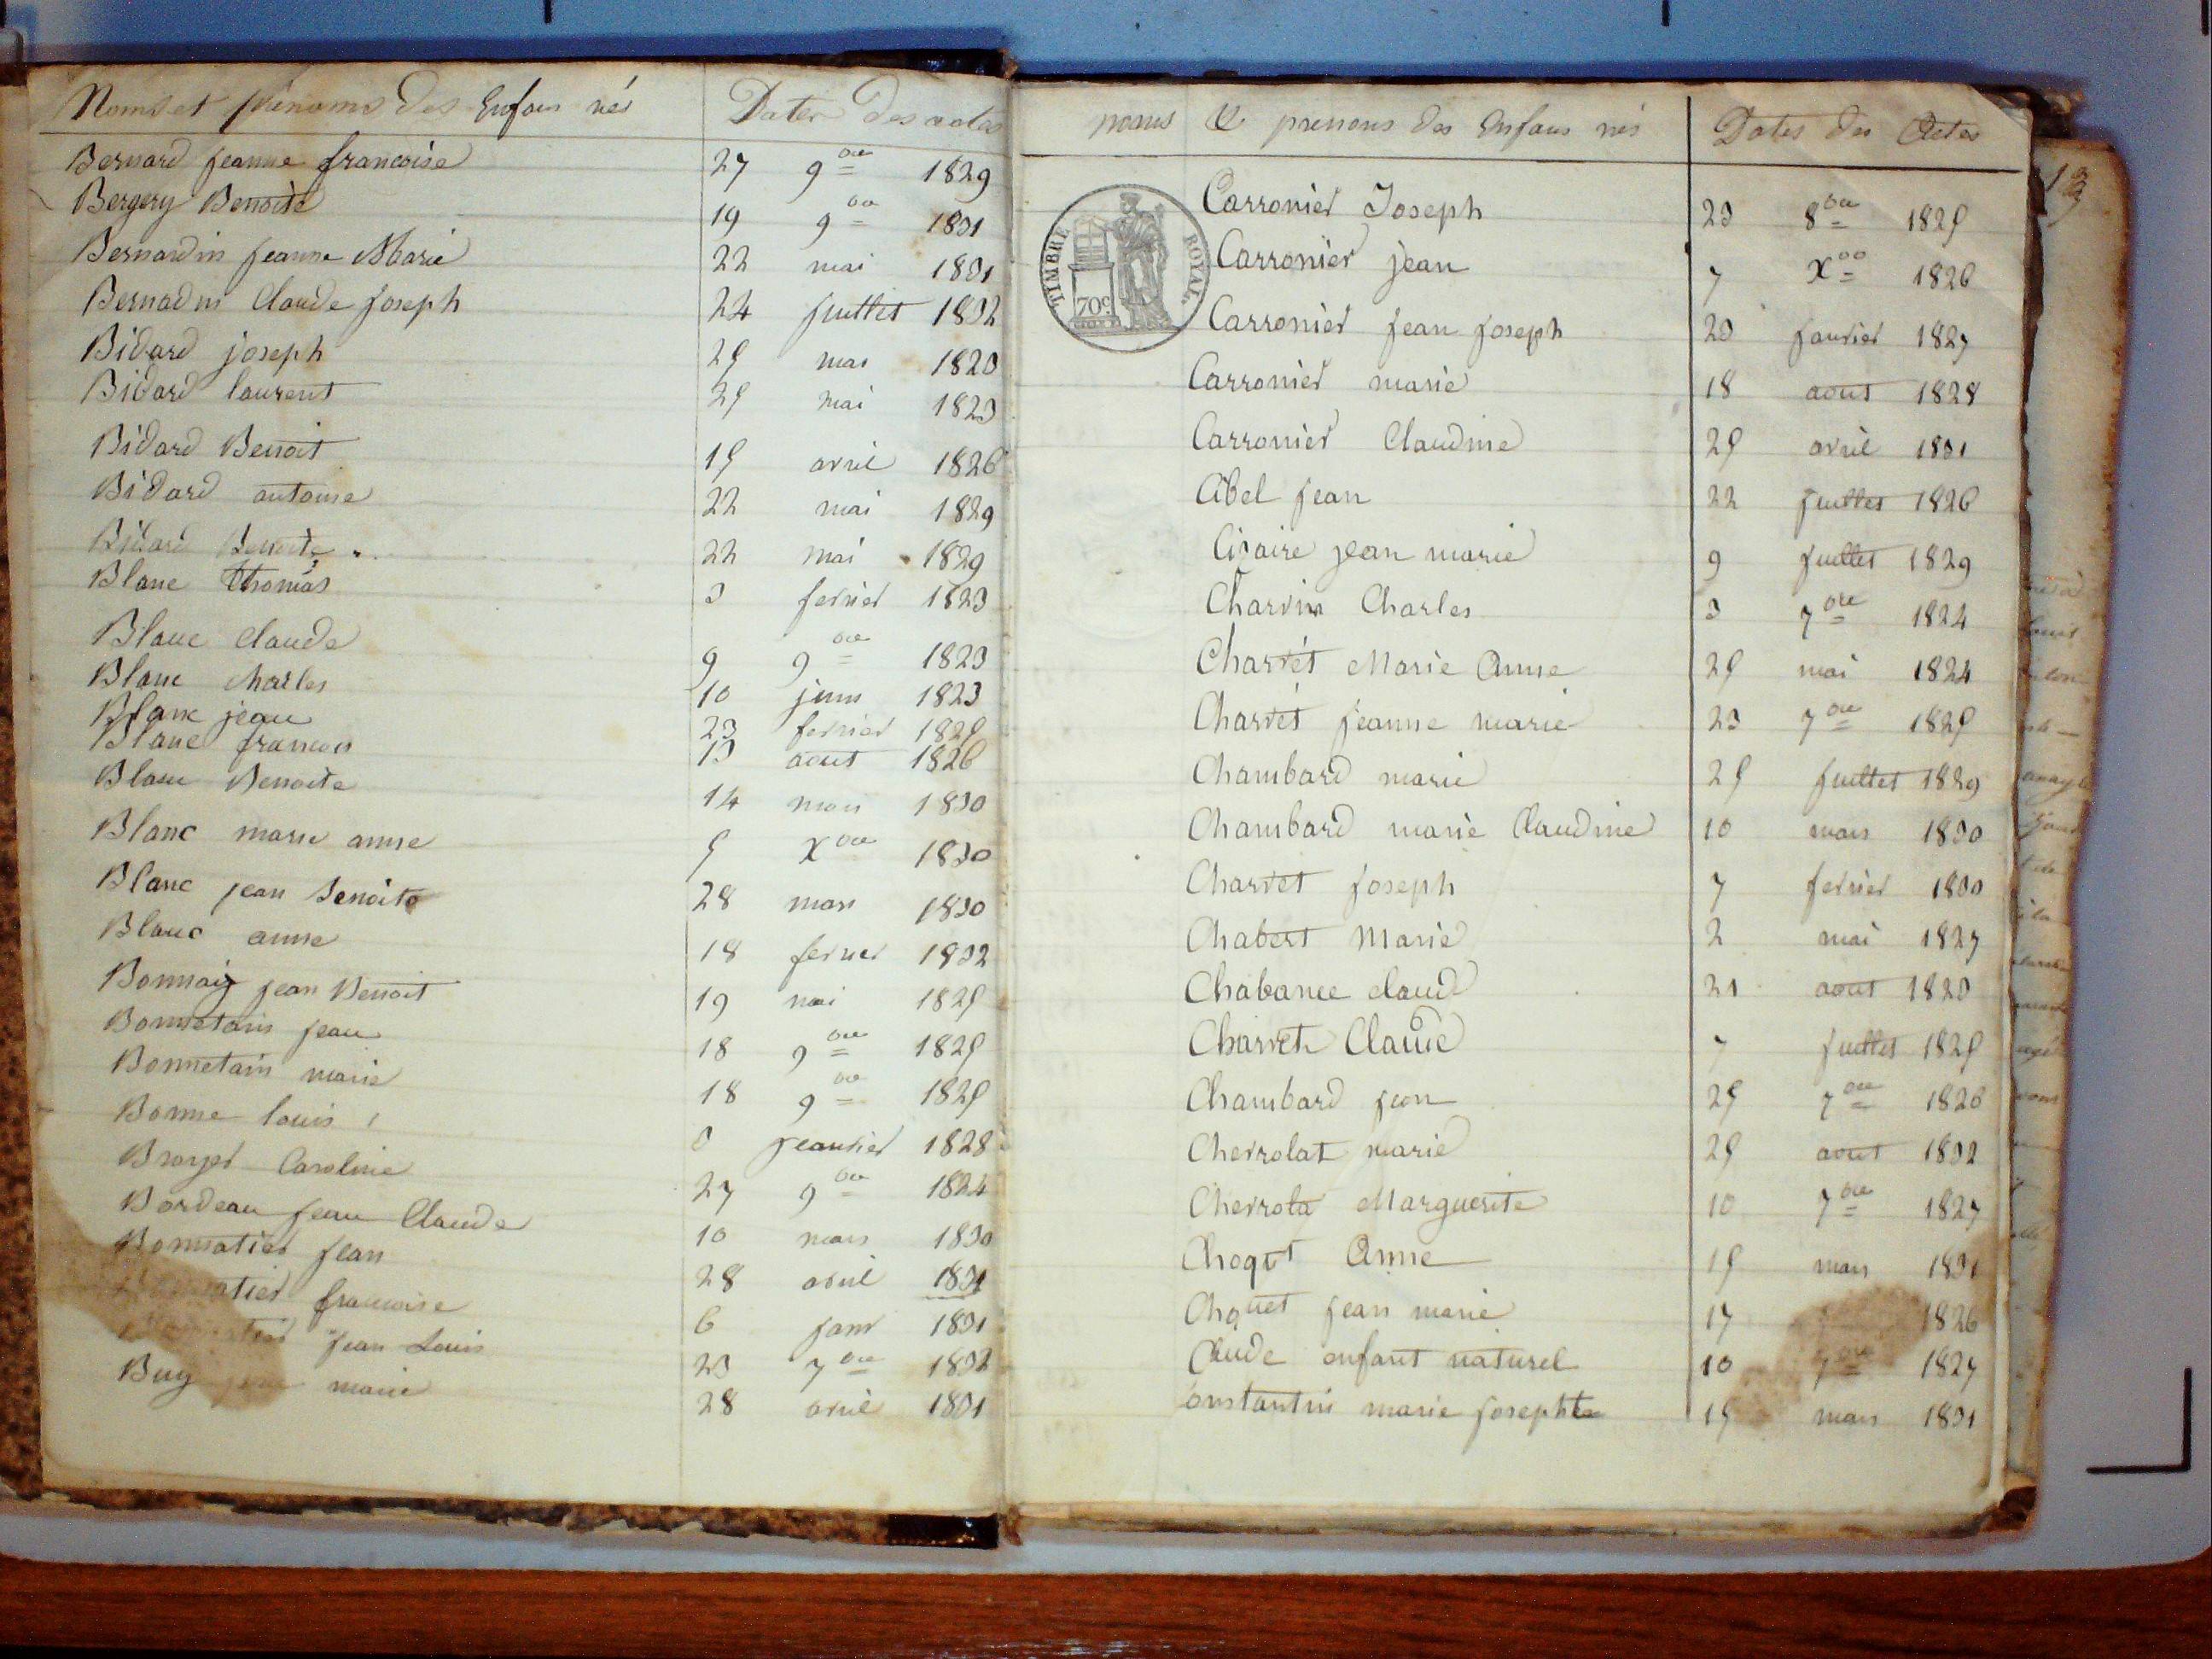 Noms et prénoms des Enfans nés Dates des actes
Bernard jeanne francoise 27 9bre 1829
Bergery Benoite 19 9bre 1831
Bernardin jeanne Marie 22 mai 1831
Bernadin Claude joseph 24 juillet 1832
Bidard joseph 25 mai 1823
Bidard laurent 25 mai 1823
Bidard Benoit 15 avril 1826
Bidard antoine 22 mai 1829
Bidard Benoite 22 mai 1829
Blanc Thomas 3 fevrier 1823
Blanc Claude 9 9bre 1823
Blanc Charles 10 juin 1823
Blanc jean 23 fevrier 1825
Blanc francois 13 aout 1826
Blanc Benoite 14 mars 1830
Blanc marie anne 5 Xbre 1830
Blanc jean Benoite 28 mars 1830
Blanc anne 18 fevrier 1832
Bonnay jean Benoit 19 mai 1825
Bonnetain jean 18 9bre 1825
Bonnetain marie 18 9bre 1825
Bonne louis 3 jeanvier 1828
Broyer Caroline 27 9bre 1824
Bordeau jean Claude 10 mars 1830
Bonnatier jean 28 avril 1831
francoise 6 janv 1831
jean Louis 23 7bre 1832
Buy marie 28 avril 1831
noms & prenons des Enfans nés Dates des Actes
TIMBRE ROYAL
70c
Carronier Joseph 23 8bre 1825
Carronier jean 7 Xbre 1826
Carronier jean joseph 23 janvier 1827
Carronier marie 18 aout 1828
Carronier Claudine 25 avril 1831
Abel jean 22 juillet 1826
Ciraire jean marie 9 juillet 1829
Charvin Charles 3 7bre 1824
Charvet Marie Anne 25 mai 1824
Charvet jeanne marie 23 7bre 1825
Chambard marie 25 juillet 1829
Chambard marie Claudine 10 mars 1830
Charvet joseph 7 fevrier 1830
Chabert Marie 2 mai 1827
Chabance claude 21 aout 1823
Charvet Claude 7 juillet 1825
Chambard jean 25 7bre 1826
Chevrolat marie 25 aout 1832
Chevrola Marguerite 10 7bre 1827
Choqet Anne 15 mars 1831
Choquet jean marie 17 1826
Claude enfant naturel 10 7bre 1827
onstantin marie josephte 15 mars 1831